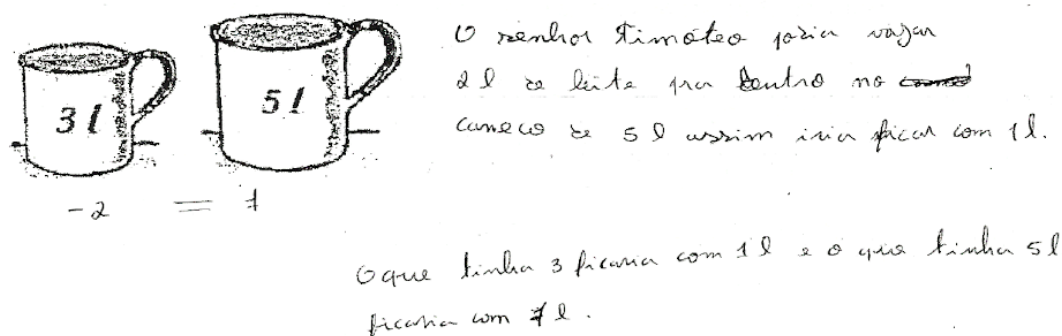 3 l
5 l
-2 = 7
O senhor Timóteo podia vazar
2 l de leite pra dentro no
caneco de 5 l assim iria ficar com 1 l.
O que tinha 3 ficaria com 1 l e o que tinha 5 l
ficaria com 7 l.